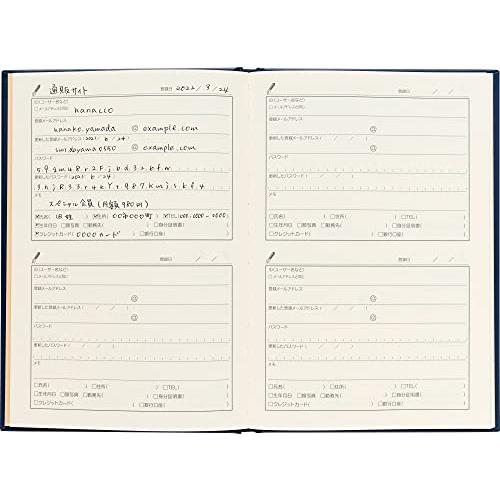 通販サイト 登録日 2022/3/24
ID(ユーザー名など)
□メールアドレスと同じ hanacco
登録メールアドレス
hanako.yamada @ example.com
更新した登録メールアドレス(2021/6/24)
@ example.com
パスワード
更新したパスワード(2021/6/24)
メモ
スペシャル会員(月額980円)
☑氏名( 旧姓 ) ☑住所( 00市000町 ) ☑TEL( 000-0000-0000 )
☑生年月日 □顔写真 □勤務先( ) □身分証明書( )
☑クレジットカード( 0000カード ) □銀行口座( )
登録日 / /
ID(ユーザー名など)
□メールアドレスと同じ
登録メールアドレス
@
更新した登録メールアドレス( / / )
@
パスワード
更新したパスワード( / / )
メモ
□氏名( ) □住所( ) □TEL( )
□生年月日 □顔写真 □勤務先( ) □身分証明書( )
□クレジットカード( ) □銀行口座( )
登録日 / /
ID(ユーザー名など)
□メールアドレスと同じ
登録メールアドレス
@
更新した登録メールアドレス( / / )
@
パスワード
更新したパスワード( / / )
メモ
□氏名( ) □住所( ) □TEL( )
□生年月日 □顔写真 □勤務先( ) □身分証明書( )
□クレジットカード( ) □銀行口座( )
登録日 / /
ID(ユーザー名など)
□メールアドレスと同じ
登録メールアドレス
@
更新した登録メールアドレス( / / )
@
パスワード
更新したパスワード( / / )
メモ
□氏名( ) □住所( ) □TEL( )
□生年月日 □顔写真 □勤務先( ) □身分証明書( )
□クレジットカード( ) □銀行口座( )